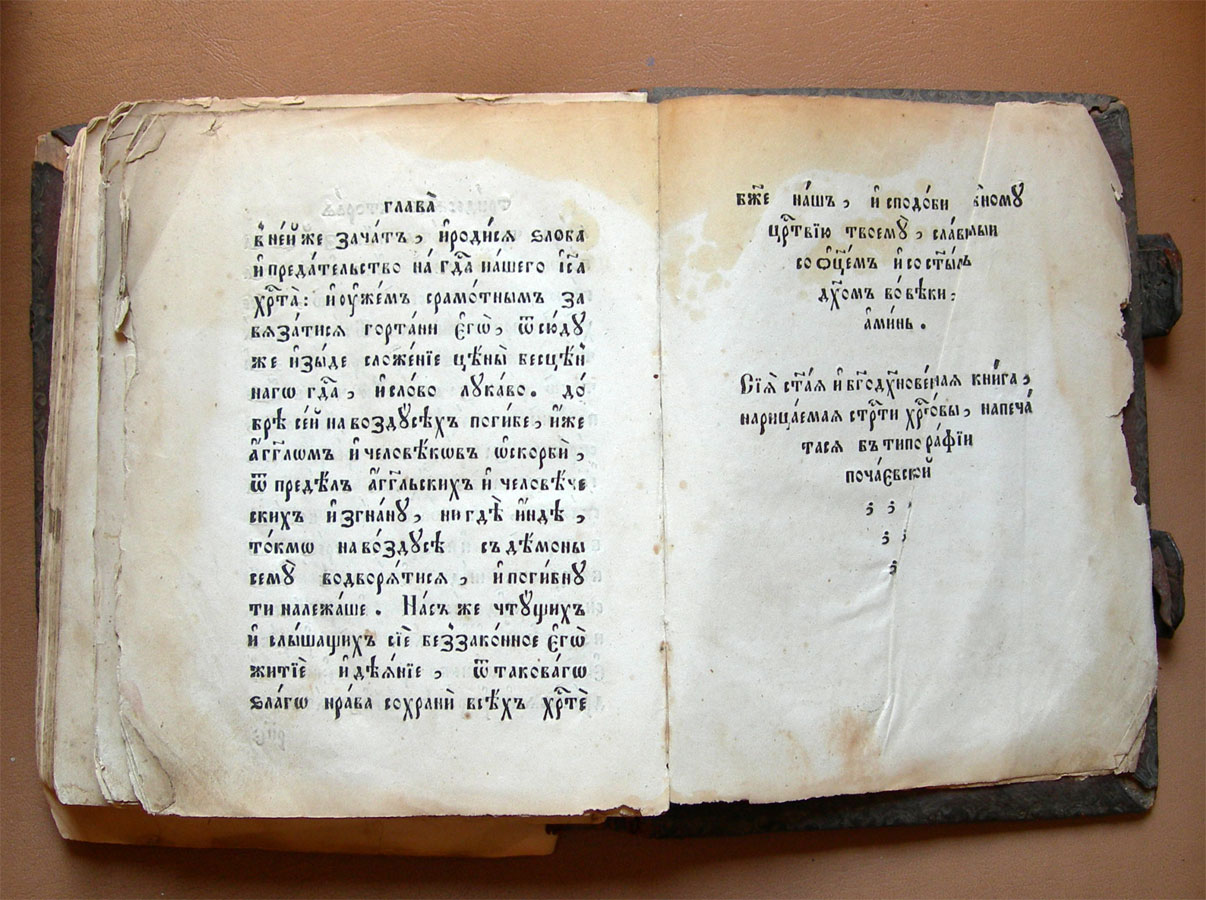 ГЛАВА̀
в̾ не́й же зача́тъ, и҆ роди́сѧ ѕлоба
и҆ преда́тельство на́ гдⷭ҇а на́шего і҆с҃а
хрⷭ҇та̀: и҆ оу҆жемъ срамо́тнымъ за
вѧза́тисѧ горта́ни є҆гѡ̀, ѿ сю́дꙋ
же и҆зы́де сложе́нїе цѣны̀ бесцѣ́н
нагѡ гдⷭ҇а, и҆ сло́во лꙋка́во. до́
брѣ се́й на во́здꙋсѣхъ поги́бе, и҆́же
а҆́гг҃лѡмъ и҆ человѣ́кѡвъ ѡ҆скорбѝ,
ѿ предѣ́лъ а҆́гг҃льскихъ и҆ человѣ́че
скихъ и҆згна́нꙋ, ни гдѣ̀ и҆́ндѣ,
то́кмѡ на во́здꙋсѣ съ де́моны
семꙋ̀ водворѧ́тисѧ, и҆ поги́бнꙋ
ти належа́ше. На́съ же чтꙋ́щихъ
и҆ слы́шащихъ сїѐ беззако́нное є҆гѡ̀
житїѐ и҆ дѣѧ́нїе, ѿ такова́гѡ
ѕла́гѡ нра́ва сохранѝ всѣ́хъ хрⷭ҇тѐ
бж҃е на́шъ, и҆ сподо́би
црⷭ҇твїю твоемꙋ̀, сла́вный
со ѻ҆ц҃е́мъ и҆ со ст҃ы́мъ
дх҃омъ во́ вѣки,
а҆ми́нь.
Сїѧ̀ ст҃а́ѧ и҆ бг҃одх҃нове́ннаѧ кни́га,
нарица́емаѧ стрⷭ҇ти хрⷭ҇то́вы, напеча́
тасѧ въ типогра́фїи
поча́євской